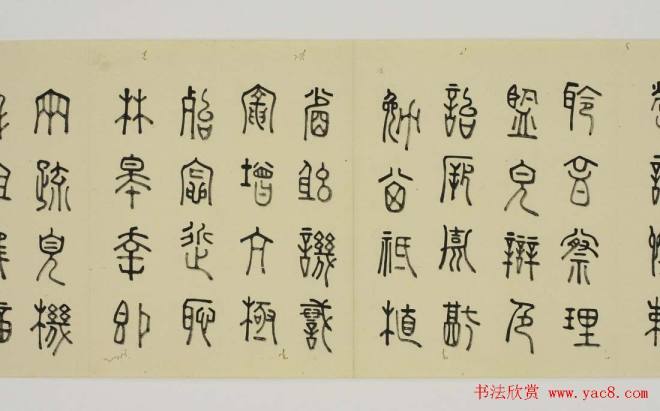 聆音察理
監皃辯色
詒厥嘉猷
勉其祗植
省躬譏誡
寵增亢極
殆辱近恥
林皋幸即
兩疏見機
书法欣赏 www.yac8.com